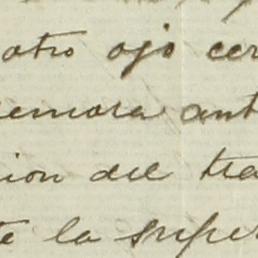 otro ojo cer
emora ant
ion del tra
te la super